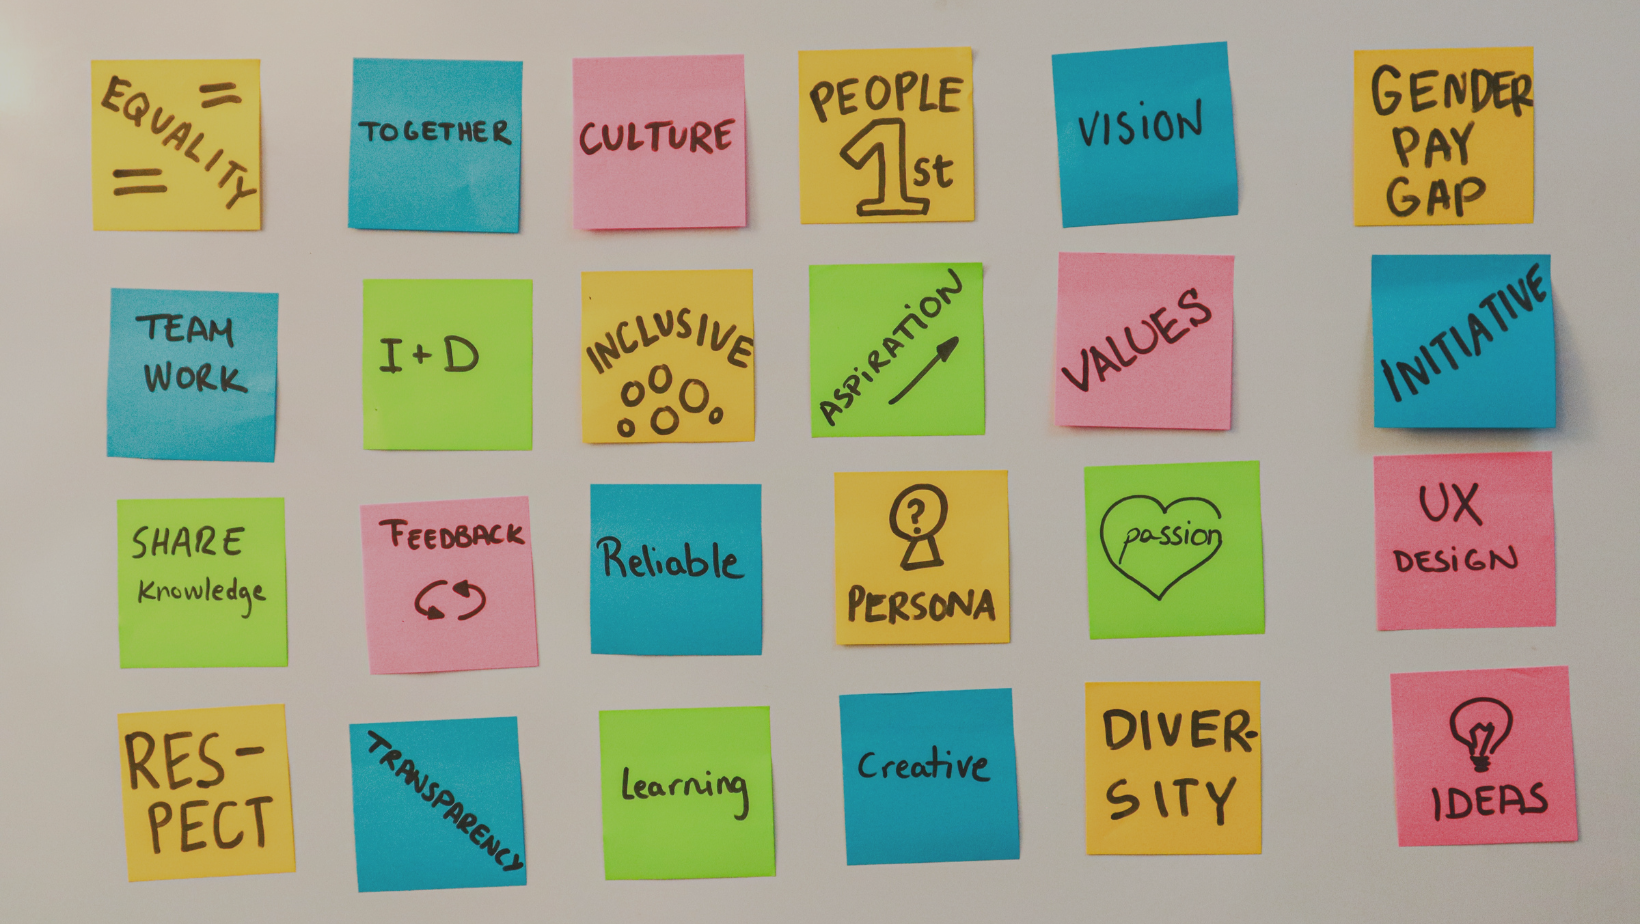 EQUALITY
=
=
TOGETHER
CULTURE
PEOPLE
1st
VISION
GENDER
PAY
GAP
TEAM
WORK
I + D
INCLUSIVE
ASPIRATION
VALUES
INITIATIVE
SHARE
Knowledge
FEEDBACK
Reliable
?
PERSONA
passion
UX
DESIGN
RES-
PECT
TRANSPARENCY
Learning
Creative
DIVER-
SITY
IDEAS